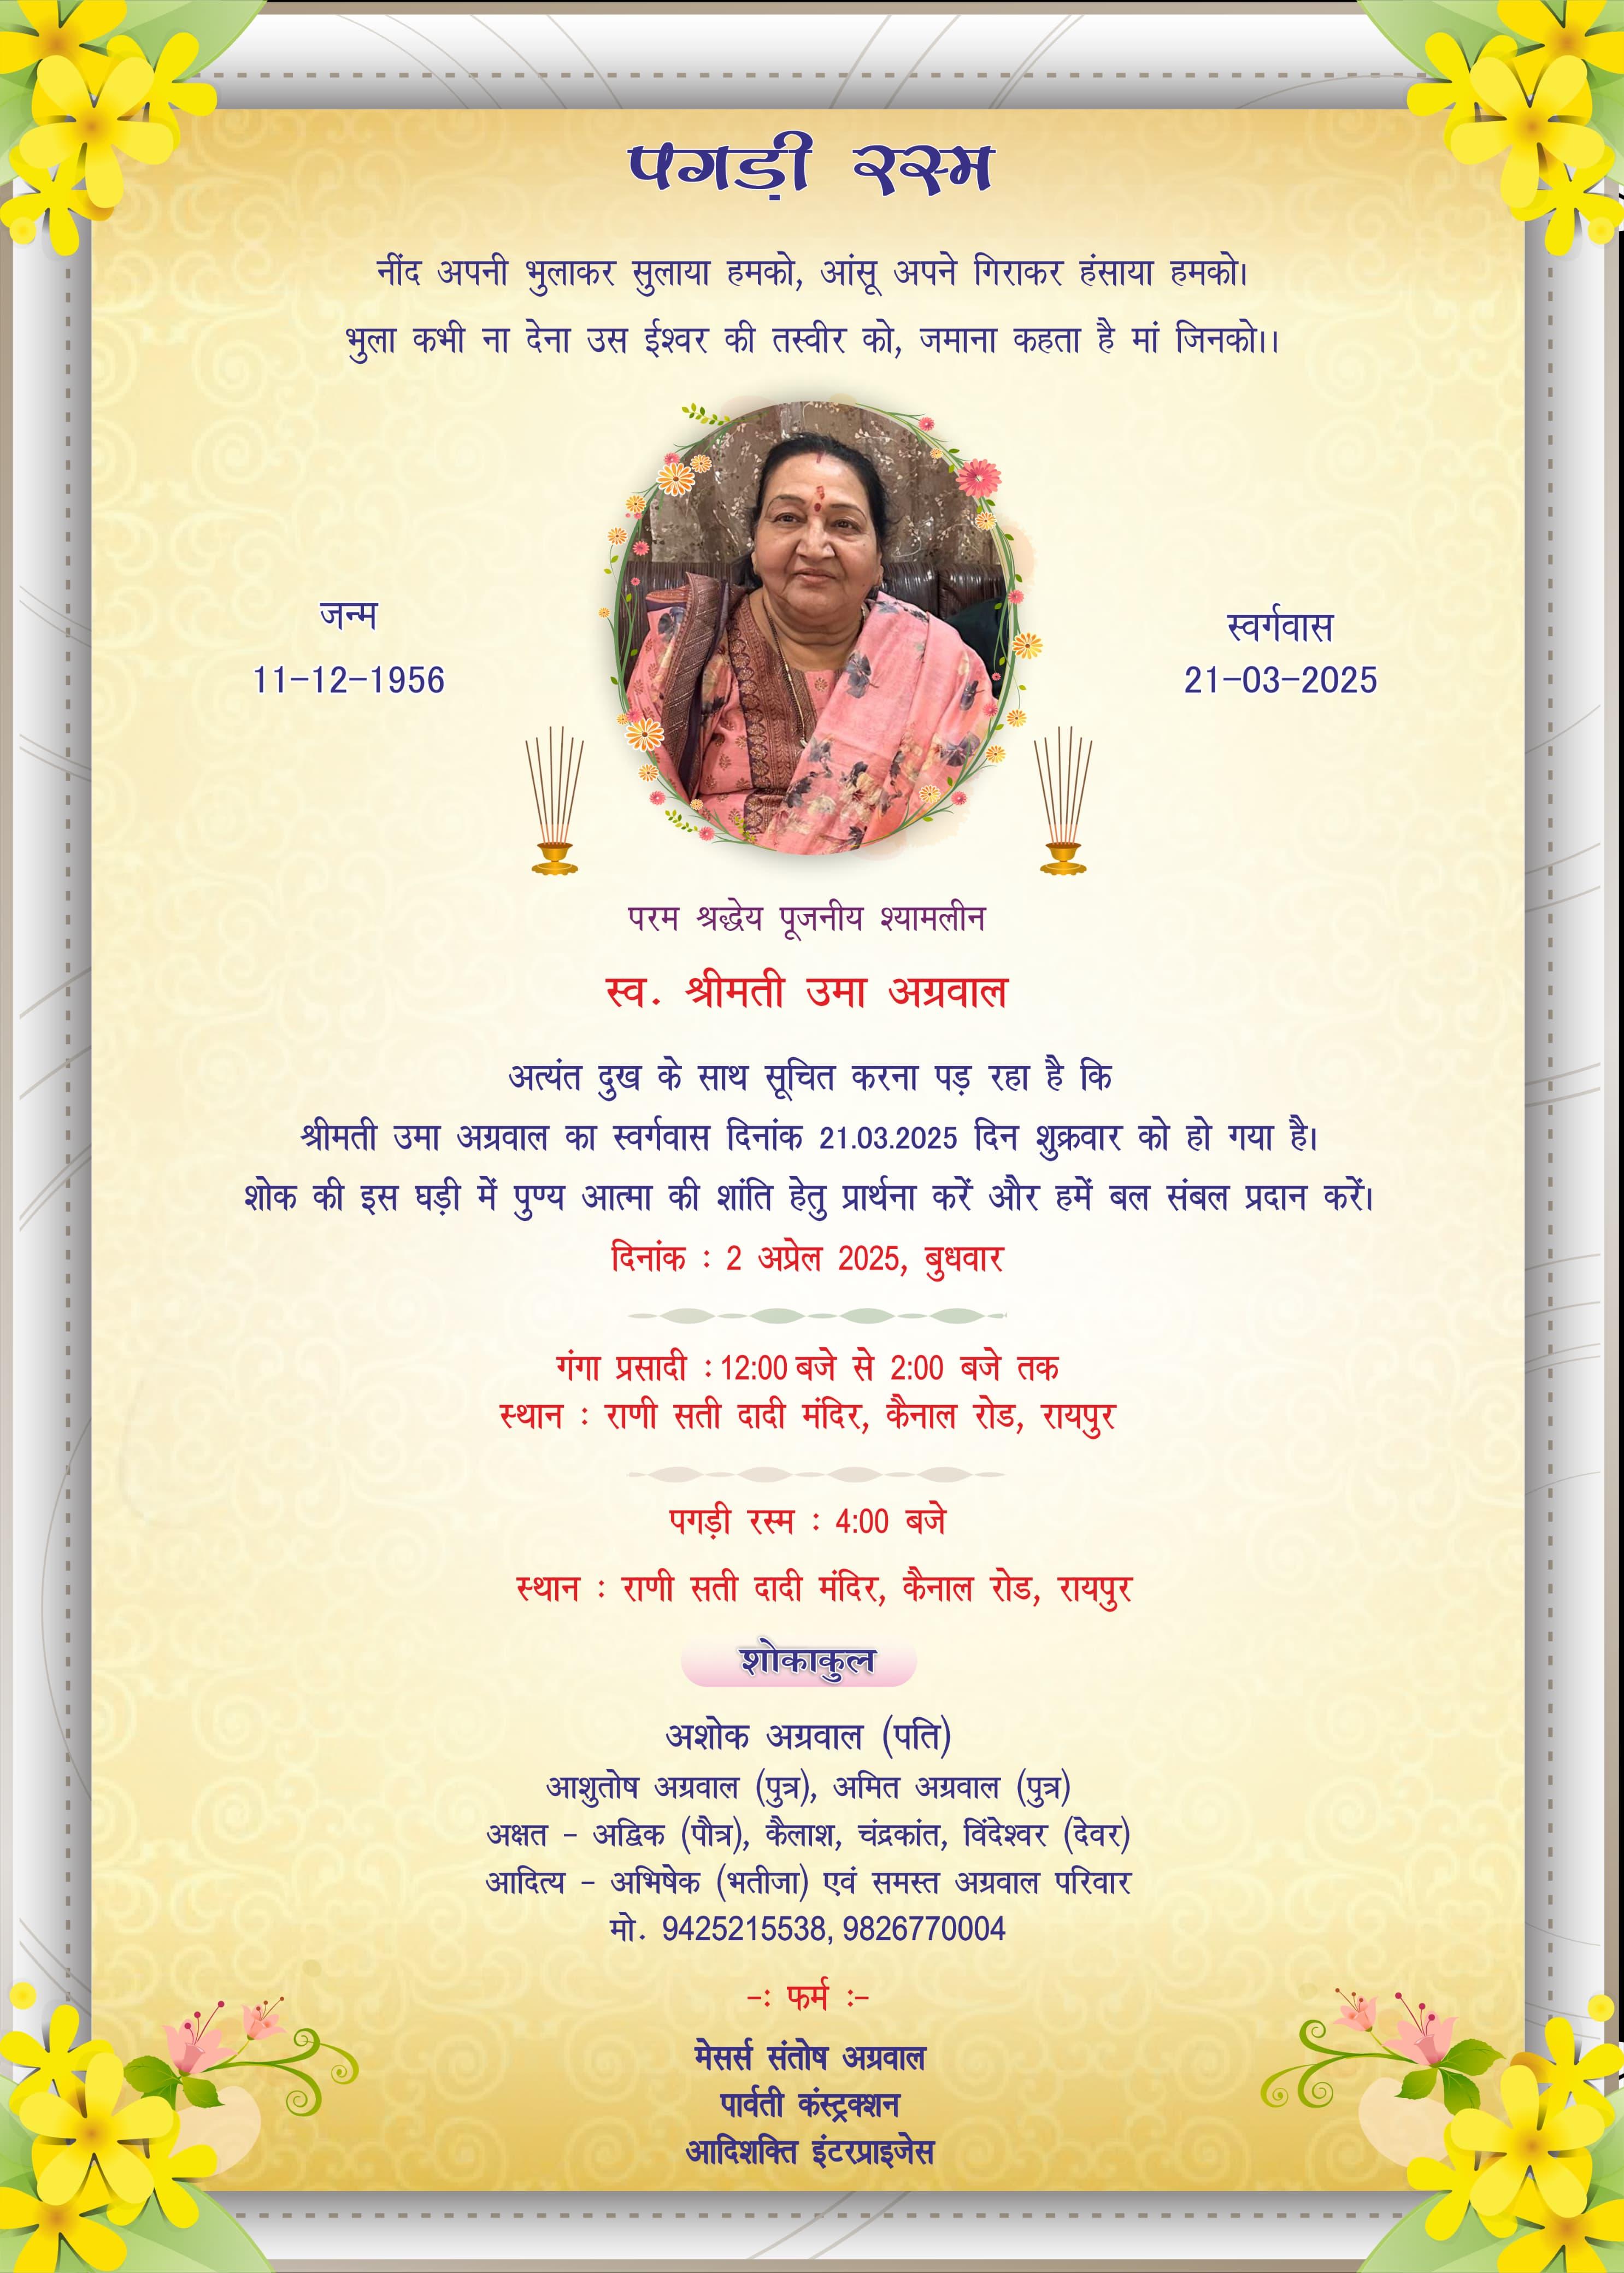 पगड़ी रस्म
नींद अपनी भुलाकर सुलाया हमको, आंसू अपने गिराकर हंसाया हमको।
भुला कभी ना देना उस ईश्वर की तस्वीर को, जमाना कहता है मां जिनको।।
जन्म
11-12-1956
स्वर्गवास
21-03-2025
परम श्रद्धेय पूजनीय श्यामलीन
स्व. श्रीमती उमा अग्रवाल
अत्यंत दुख के साथ सूचित करना पड़ रहा है कि
श्रीमती उमा अग्रवाल का स्वर्गवास दिनांक 21.03.2025 दिन शुक्रवार को हो गया है।
शोक की इस घड़ी में पुण्य आत्मा की शांति हेतु प्रार्थना करें और हमें बल संबल प्रदान करें।
दिनांक : 2 अप्रेल 2025, बुधवार
गंगा प्रसादी : 12:00 बजे से 2:00 बजे तक
स्थान : राणी सती दादी मंदिर, कैनाल रोड, रायपुर
पगड़ी रस्म : 4:00 बजे
स्थान : राणी सती दादी मंदिर, कैनाल रोड, रायपुर
शोकाकुल
अशोक अग्रवाल (पति)
आशुतोष अग्रवाल (पुत्र), अमित अग्रवाल (पुत्र)
अक्षत - अद्विक (पौत्र), कैलाश, चंद्रकांत, विंदेश्वर (देवर)
आदित्य - अभिषेक (भतीजा) एवं समस्त अग्रवाल परिवार
मो. 9425215538, 9826770004
-: फर्म :-
मेसर्स संतोष अग्रवाल
पार्वती कंस्ट्रक्शन
आदिशक्ति इंटरप्राइजेस